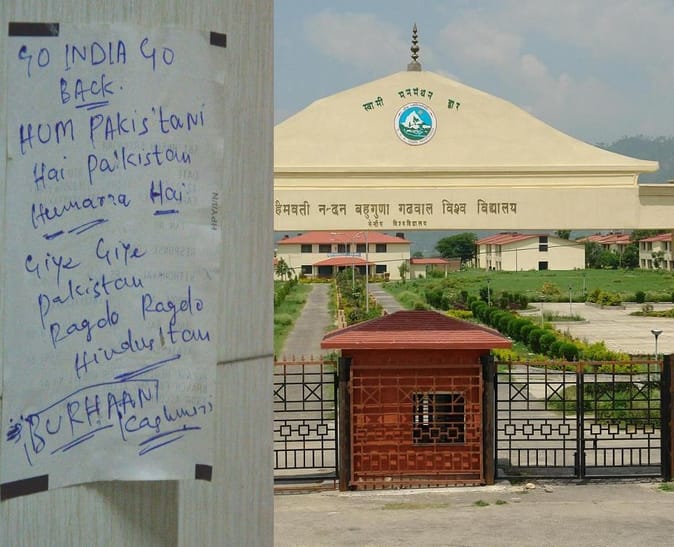 GO INDIA GO
BACK.
HUM PAKISTANI
Hai Paikistan
Humarra Hai
Giye Giye
Pakistan
Ragdo Ragdo
Hindustan
BURHAANI
(Cashmiri
स्वामी मनमंथन द्वार
हेमवती नन्दन बहुगुणा गढवाल विश्व विद्यालय